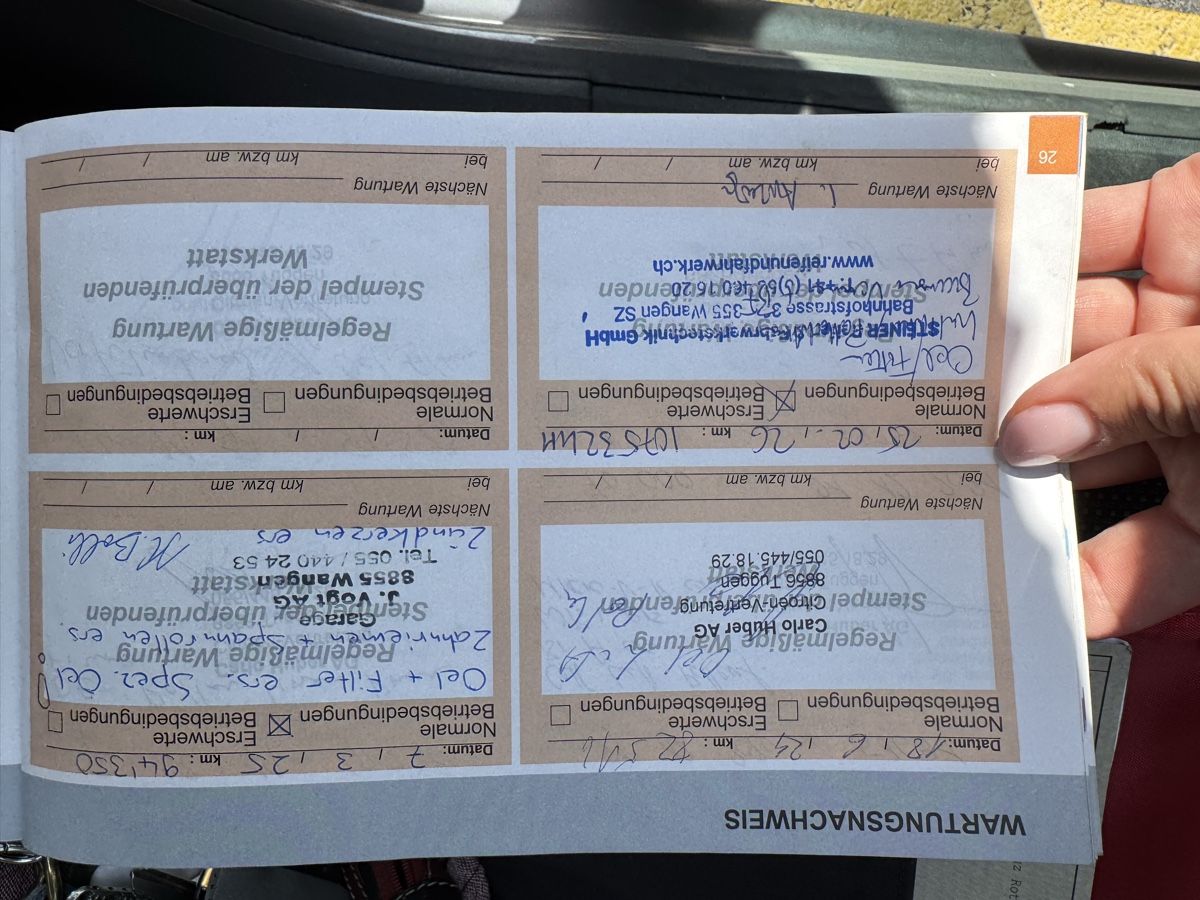 WARTUNGSNACHWEIS
Datum: 18 / 6 / 24 km :
Normale
Betriebsbedingungen
Erschwerte
Betriebsbedingungen
Regelmäßige Wartung
Stempel der überprüfenden
Werkstatt
Carlo Huber AG
Citroën-Vertretung
8856 Tuggen
055/445.18.29
Nächste Wartung
bei / / km bzw. am
Datum: 7 / 3 / 25 km : 94'350
Normale
Betriebsbedingungen
Erschwerte
Betriebsbedingungen
Oel + Filter ers. Spez. Oel !
Regelmäßige Wartung
Zahnriemen + Spannrollen ers
Stempel der überprüfenden
Werkstatt
Garage
J. Vogt AG
8855 Wangen
Tel. 055 / 440 24 53
Zündkerzen ers M. Bolli
Nächste Wartung
bei / / km bzw. am
Datum: 25 / 02 / 26 km : 107532 KM
Normale
Betriebsbedingungen
Erschwerte
Betriebsbedingungen
Oel/Filter
Regelmäßige Wartung
Stempel der überprüfenden
STEINER Reifen & Fahrwerkstechnik GmbH
Bahnhofstrasse 8855 Wangen SZ
www.reifenundfahrwerk.ch
Nächste Wartung
bei / / km bzw. am
Datum: / / km :
Normale
Betriebsbedingungen
Erschwerte
Betriebsbedingungen
Regelmäßige Wartung
Stempel der überprüfenden
Werkstatt
Nächste Wartung
bei / / km bzw. am
26